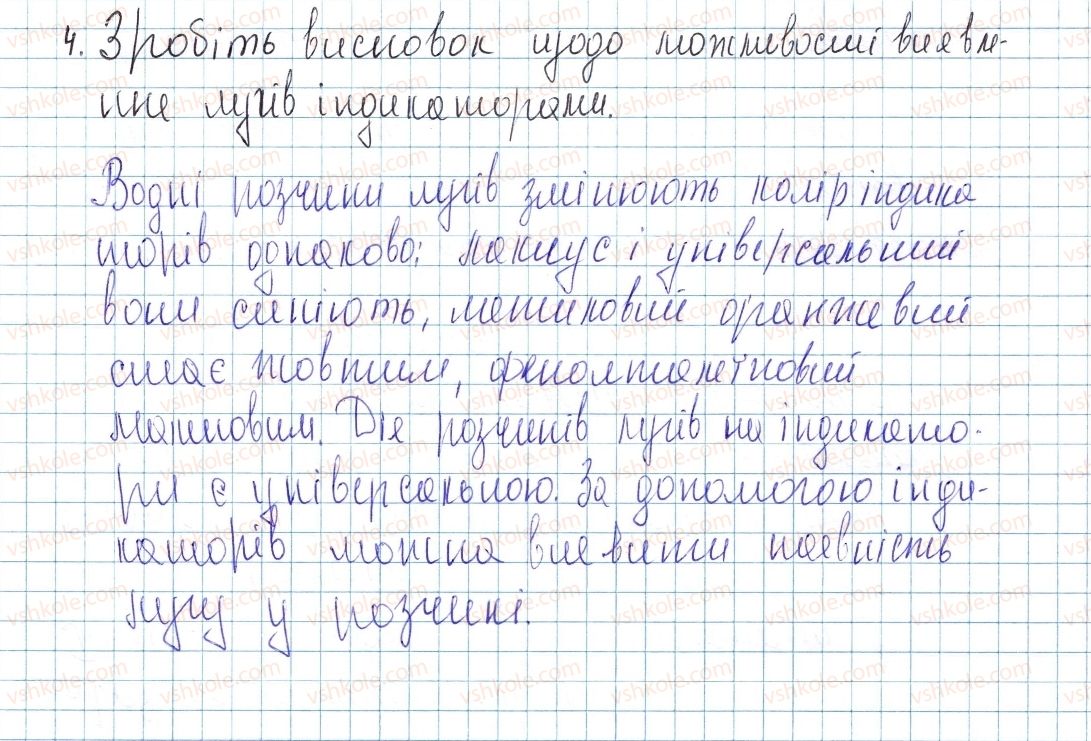 4. Зробіть висновок щодо можливості виявле-
ння лугів індикаторами.
Водні розчини лугів змінюють колір індика
торів однаково: лакмус і універсальний
вони синіють, метиловий оранжевий
стає жовтим, фенолфталеїновий
малиновим. Дія розчинів лугів на індикато-
ри є універсальною. За допомогою інди-
каторів можна виявити наявність
лугу у розчині.